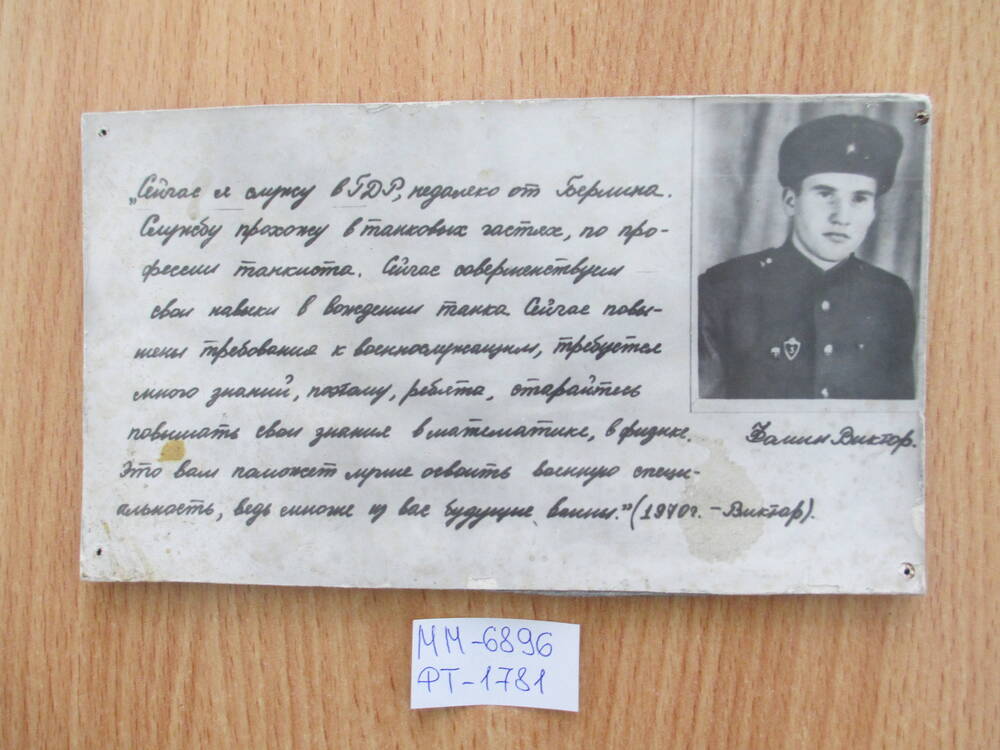 „Сейчас я служу в ГДР, недалеко от Берлина.
Службу прохожу в танковых частях, по про-
фессии танкиста. Сейчас совершенствуем
свои навыки в вождении танка. Сейчас повы-
шены требования к военнослужащим, требуется
много знаний, поэтому, ребята, старайтесь
повышать свои знания в математике, в физике.
Это вам поможет лучше освоить военную специ-
альность, ведь многие из вас будущие воины." (1970г. - Виктор).
Виктор.
3
ММ-6896
ФТ-1781